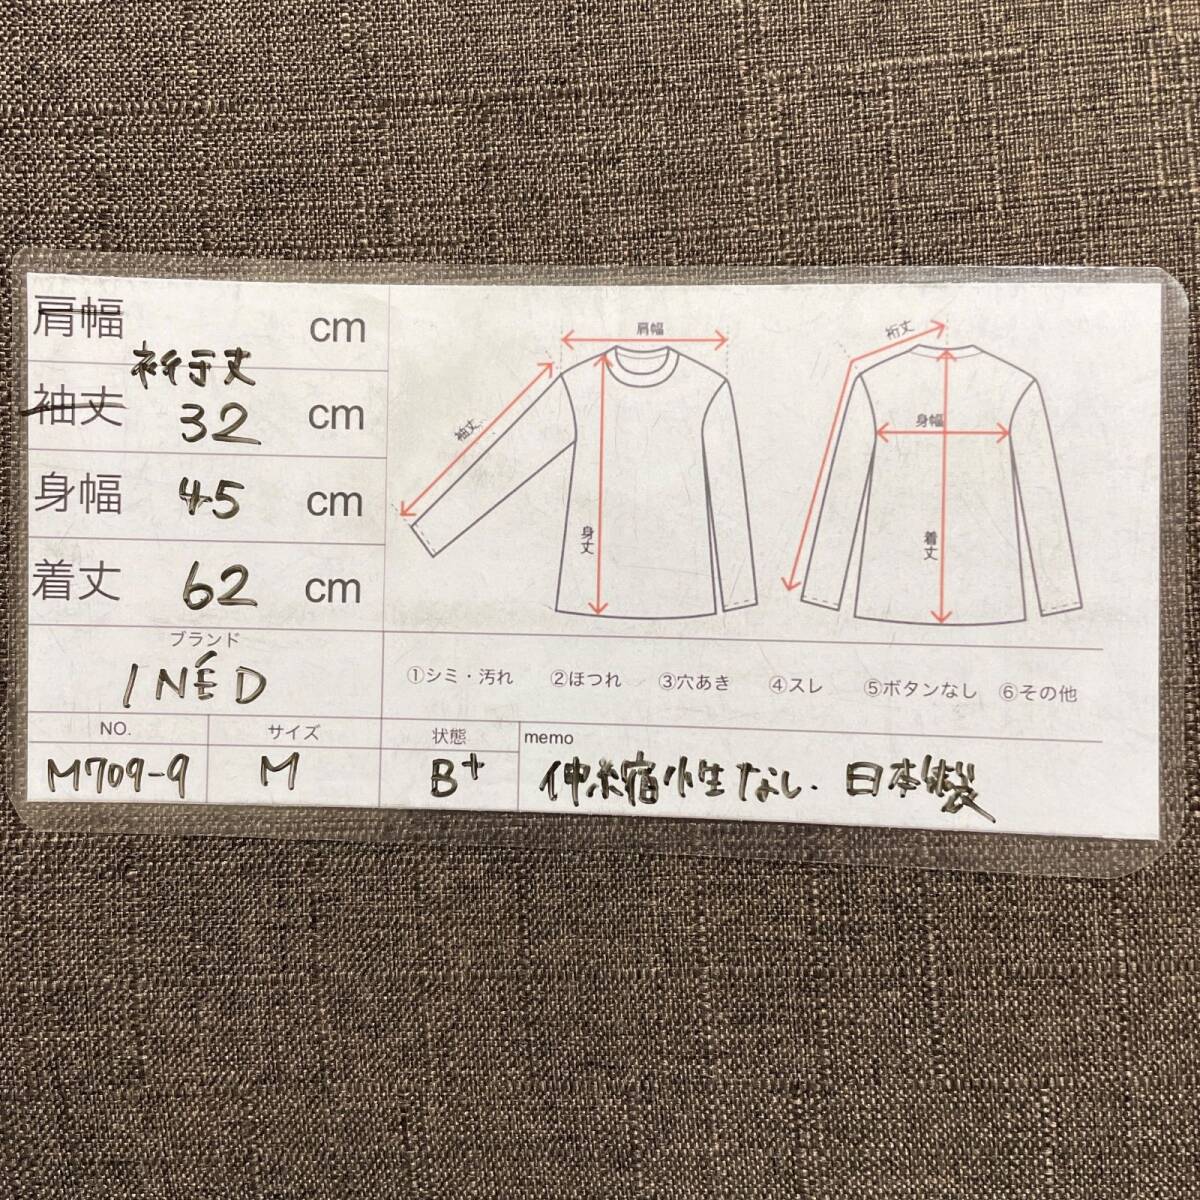 肩幅 cm
裄丈
袖丈 32 cm
身幅 45 cm
着丈 62 cm
肩幅
袖丈
身丈
裄丈
身幅
着丈
ブランド
INÉD
①シミ・汚れ ②ほつれ ③穴あき ④スレ ⑤ボタンなし ⑥その他
NO. サイズ 状態 memo
M709-9 M B+ 伸縮性なし. 日本製